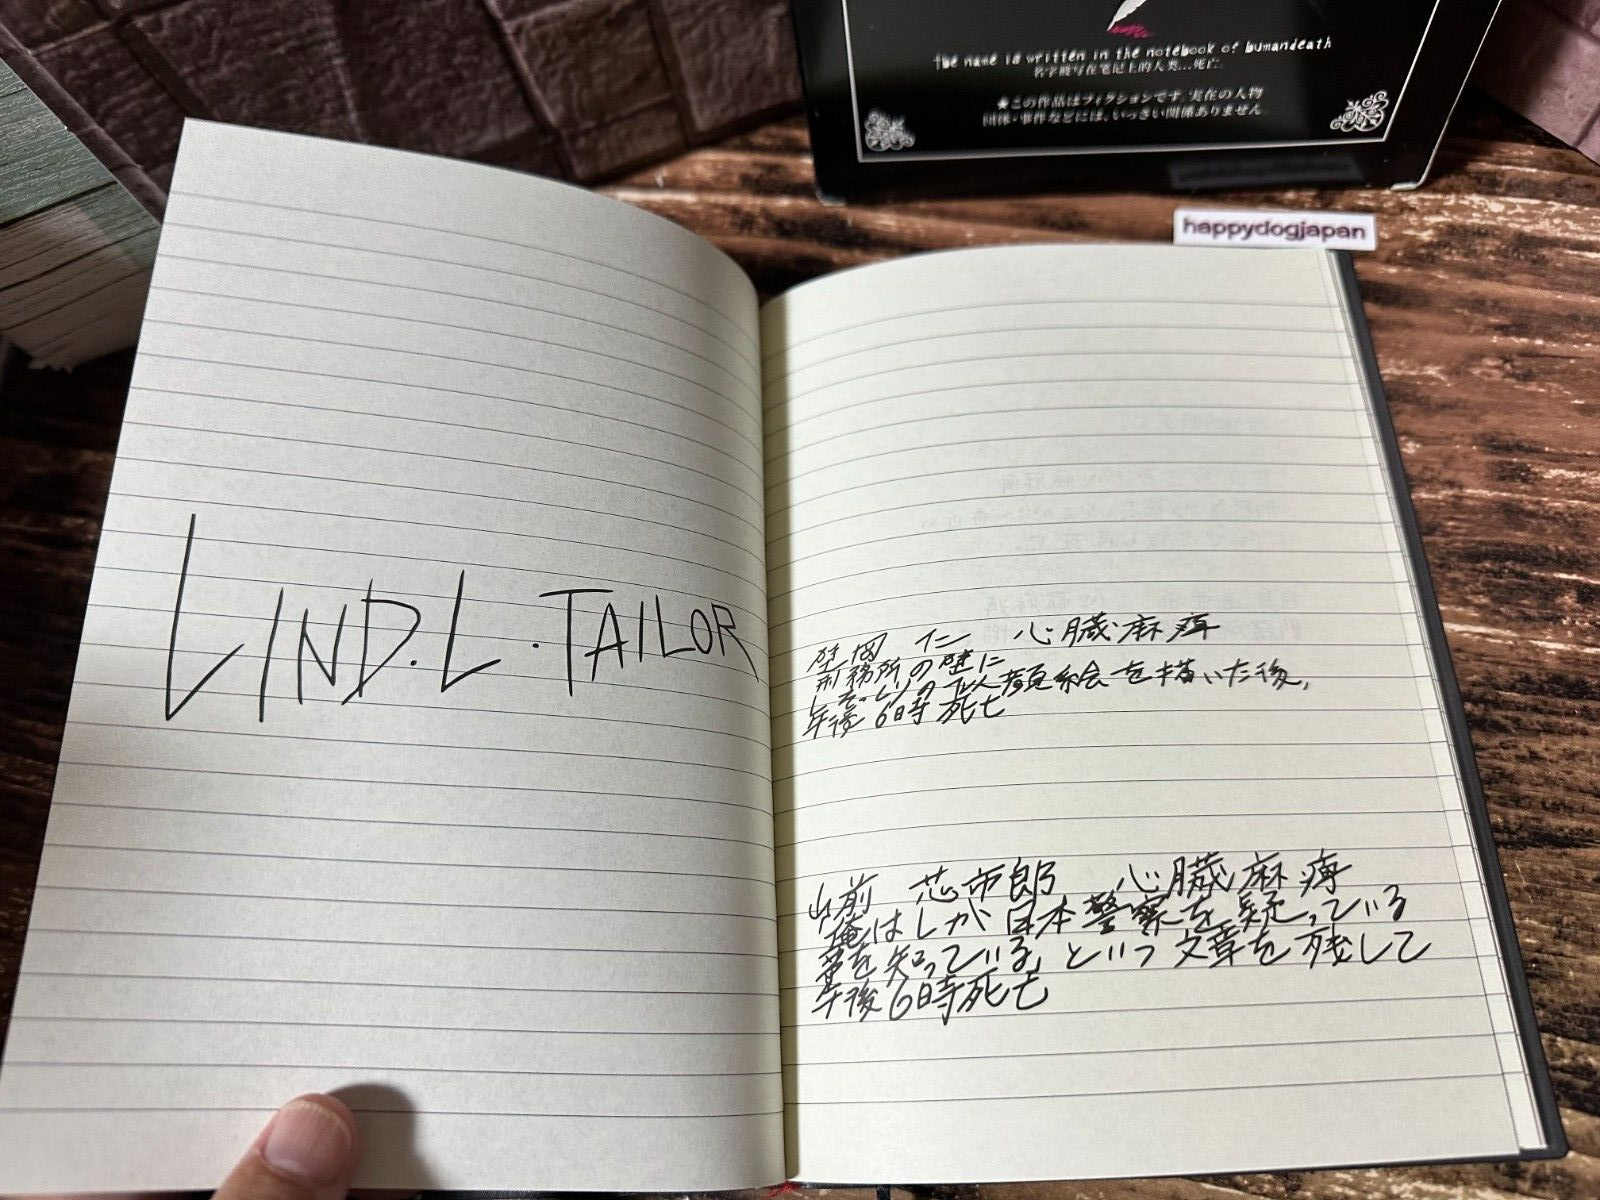 The name is written in the notebook of humandeath
名字被写在笔记上的人类...死亡.
★この作品はフィクションです。実在の人物
団体・事件などには、いっさい関係ありません
happydogjapan
LIND.L.TAILOR
仁 心臓麻痺
刑務所の壁に
を描いた後、
午後6時死亡
山前 芯市郎 心臓麻痺
俺はLが日本警察を疑っている
事を知っている」という文章を残して
午後6時死亡